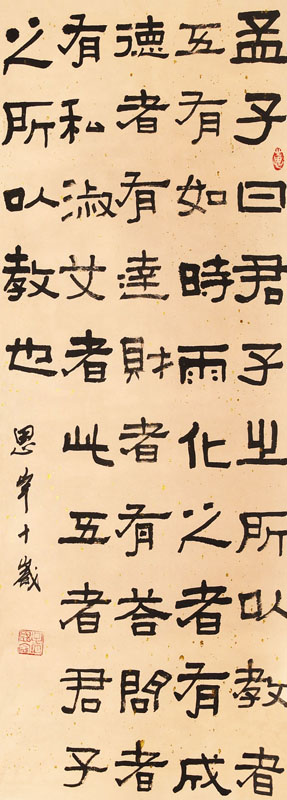 孟子曰君子之所以教者
五有如時雨化之者有成
德者有達財者有荅問者
有私淑艾者此五者君子
之所以教也
恩 十歲